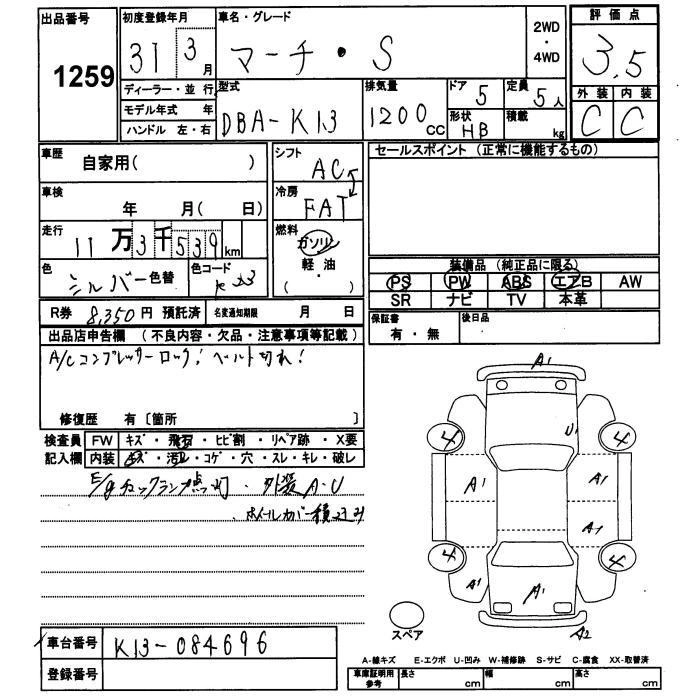 出品番号
1259
初度登録年月
31 3月
車名・グレード
マーチ・S
2WD
・
4WD
評価点
3.5
外装 内装
C C
ディーラー・並行
モデル年式 年
ハンドル 左・右
型式
DBA-K13
排気量
1200cc
ドア 5
形状 HB
定員 5人
積載 kg
車歴
自家用( )
車検
年 月( 日)
走行
11万3千539km
色
シルバー 色替
色コード
K23
シフト
AC
冷房
FAT
燃料
ガソリン
軽・油
( )
セールスポイント (正常に機能するもの)
装備品 (純正品に限る)
PS PW ABS エアB AW
SR ナビ TV 本革
保証書
有・無
後日品
R券 8,350円 預託済
名変通知期限 月 日
出品店申告欄 (不良内容・欠品・注意事項等記載)
A/Cコンプレッサーロック! ベルト切れ!
修復歴 有〔箇所 〕
検査員
記入欄
FW キズ・飛石・ヒビ割・リペア跡・X要
内装 キズ・汚れ・コゲ・穴・スレ・キレ・破レ
E/gチェックランプ点灯. 外装A・U
.ホイールカバー積込み
A1
U1
4 4
A1 A1
A1
4 4
A1 A1 A1
A2
スペア
車台番号 K13-084696
登録番号
A-線キズ E-エクボ U-凹み W-補修跡 S-サビ C-腐食 XX-取替済
車庫証明用
参考
長さ cm 幅 cm 高さ cm